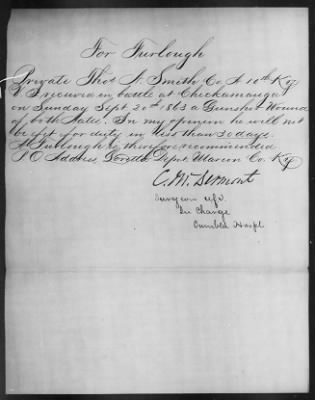 For Furlough
Private Thos. J. Smith Co. A 10th Ky
V. I received in battle at Chickamauga
on Sunday Sept. 20th 1863 a Gunshot Wound
of both Nates. In my opinion he will not
be fit for duty in less than 30 days.
A Furlough is therefore recommended
P O Address Loretto Depot Marion Co. Ky
C. McDermont
Surgeon U.S.V.
In Charge
Cumbld Hospl